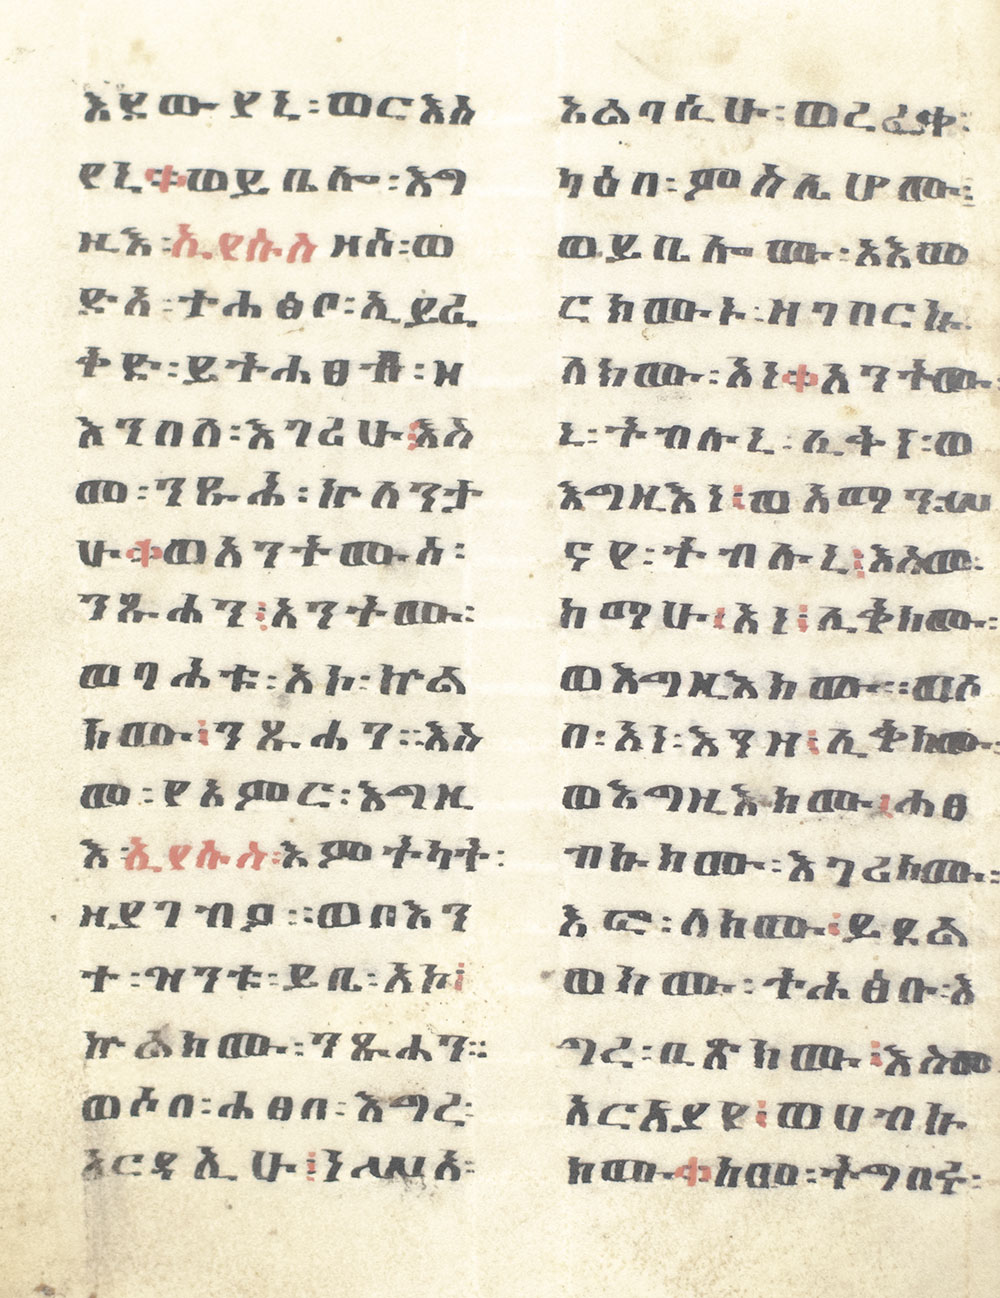 እደውየኒ፡ወርእስ
የኒ፨ወይቤሎ፡እግ
ዚእ፡ኢየሱስ፡ዘሰ፡ወ
ድአ፡ተሐፅቦ፡ኢይፈ
ቅድ፡ይትሐፀብ፡ዘ
እንበለ፡እገሪሁ፤እስ
መ፡ንጹሕ፡ኵለንታ
ሁ፨ወአንትሙሰ፡
ንጹሐን፤አንትሙ፡
ወባሕቱ፡አኮ፡ኵል
ክሙ፤ንጹሐን፡፡እስ
መ፡የአምሮ፡እግዚ
እ፡ኢየሱስ፡እምትካት፡
ዘያገብኦ፡፡ወበእን
ተ፡ዝንቱ፡ይቤ፡አኮ፤
ኵልክሙ፡ንጹሐን፡፡
ወሶበ፡ሐፀበ፡እግረ፡
አርዳኢሁ፤ነሥአ፡
አልባሲሁ፡ወረፈቀ፡
ካዕበ፡ምስሌሆሙ፡
ወይቤሎሙ፡አእመ
ርክሙኑ፡ዘገበርኩ
ለክሙ፡አነ፨አንትሙ
ኒ፡ትብሉኒ፡ሊቅነ፡ወ
እግዚእነ፤ወአማን፡ሠ
ናየ፡ትብሉኒ፤እስመ፡
ከማሁ፤አነ፤ሊቅክሙ፡
ወእግዚእክሙ፡፡ወሶ
በ፡አነ፡እንዘ፤ሊቅክሙ፡
ወእግዚእክሙ፤ሐፀ
ብኩክሙ፡እግሪክሙ፡
እፎ፡ለክሙ፤ይደል
ወክሙ፡ትሕፅቡ፡እ
ግረ፡ቢጽክሙ፤እስመ
አርአያየ፤ወሀብኩ
ክሙ፨ከመ፡ትግበሩ፡